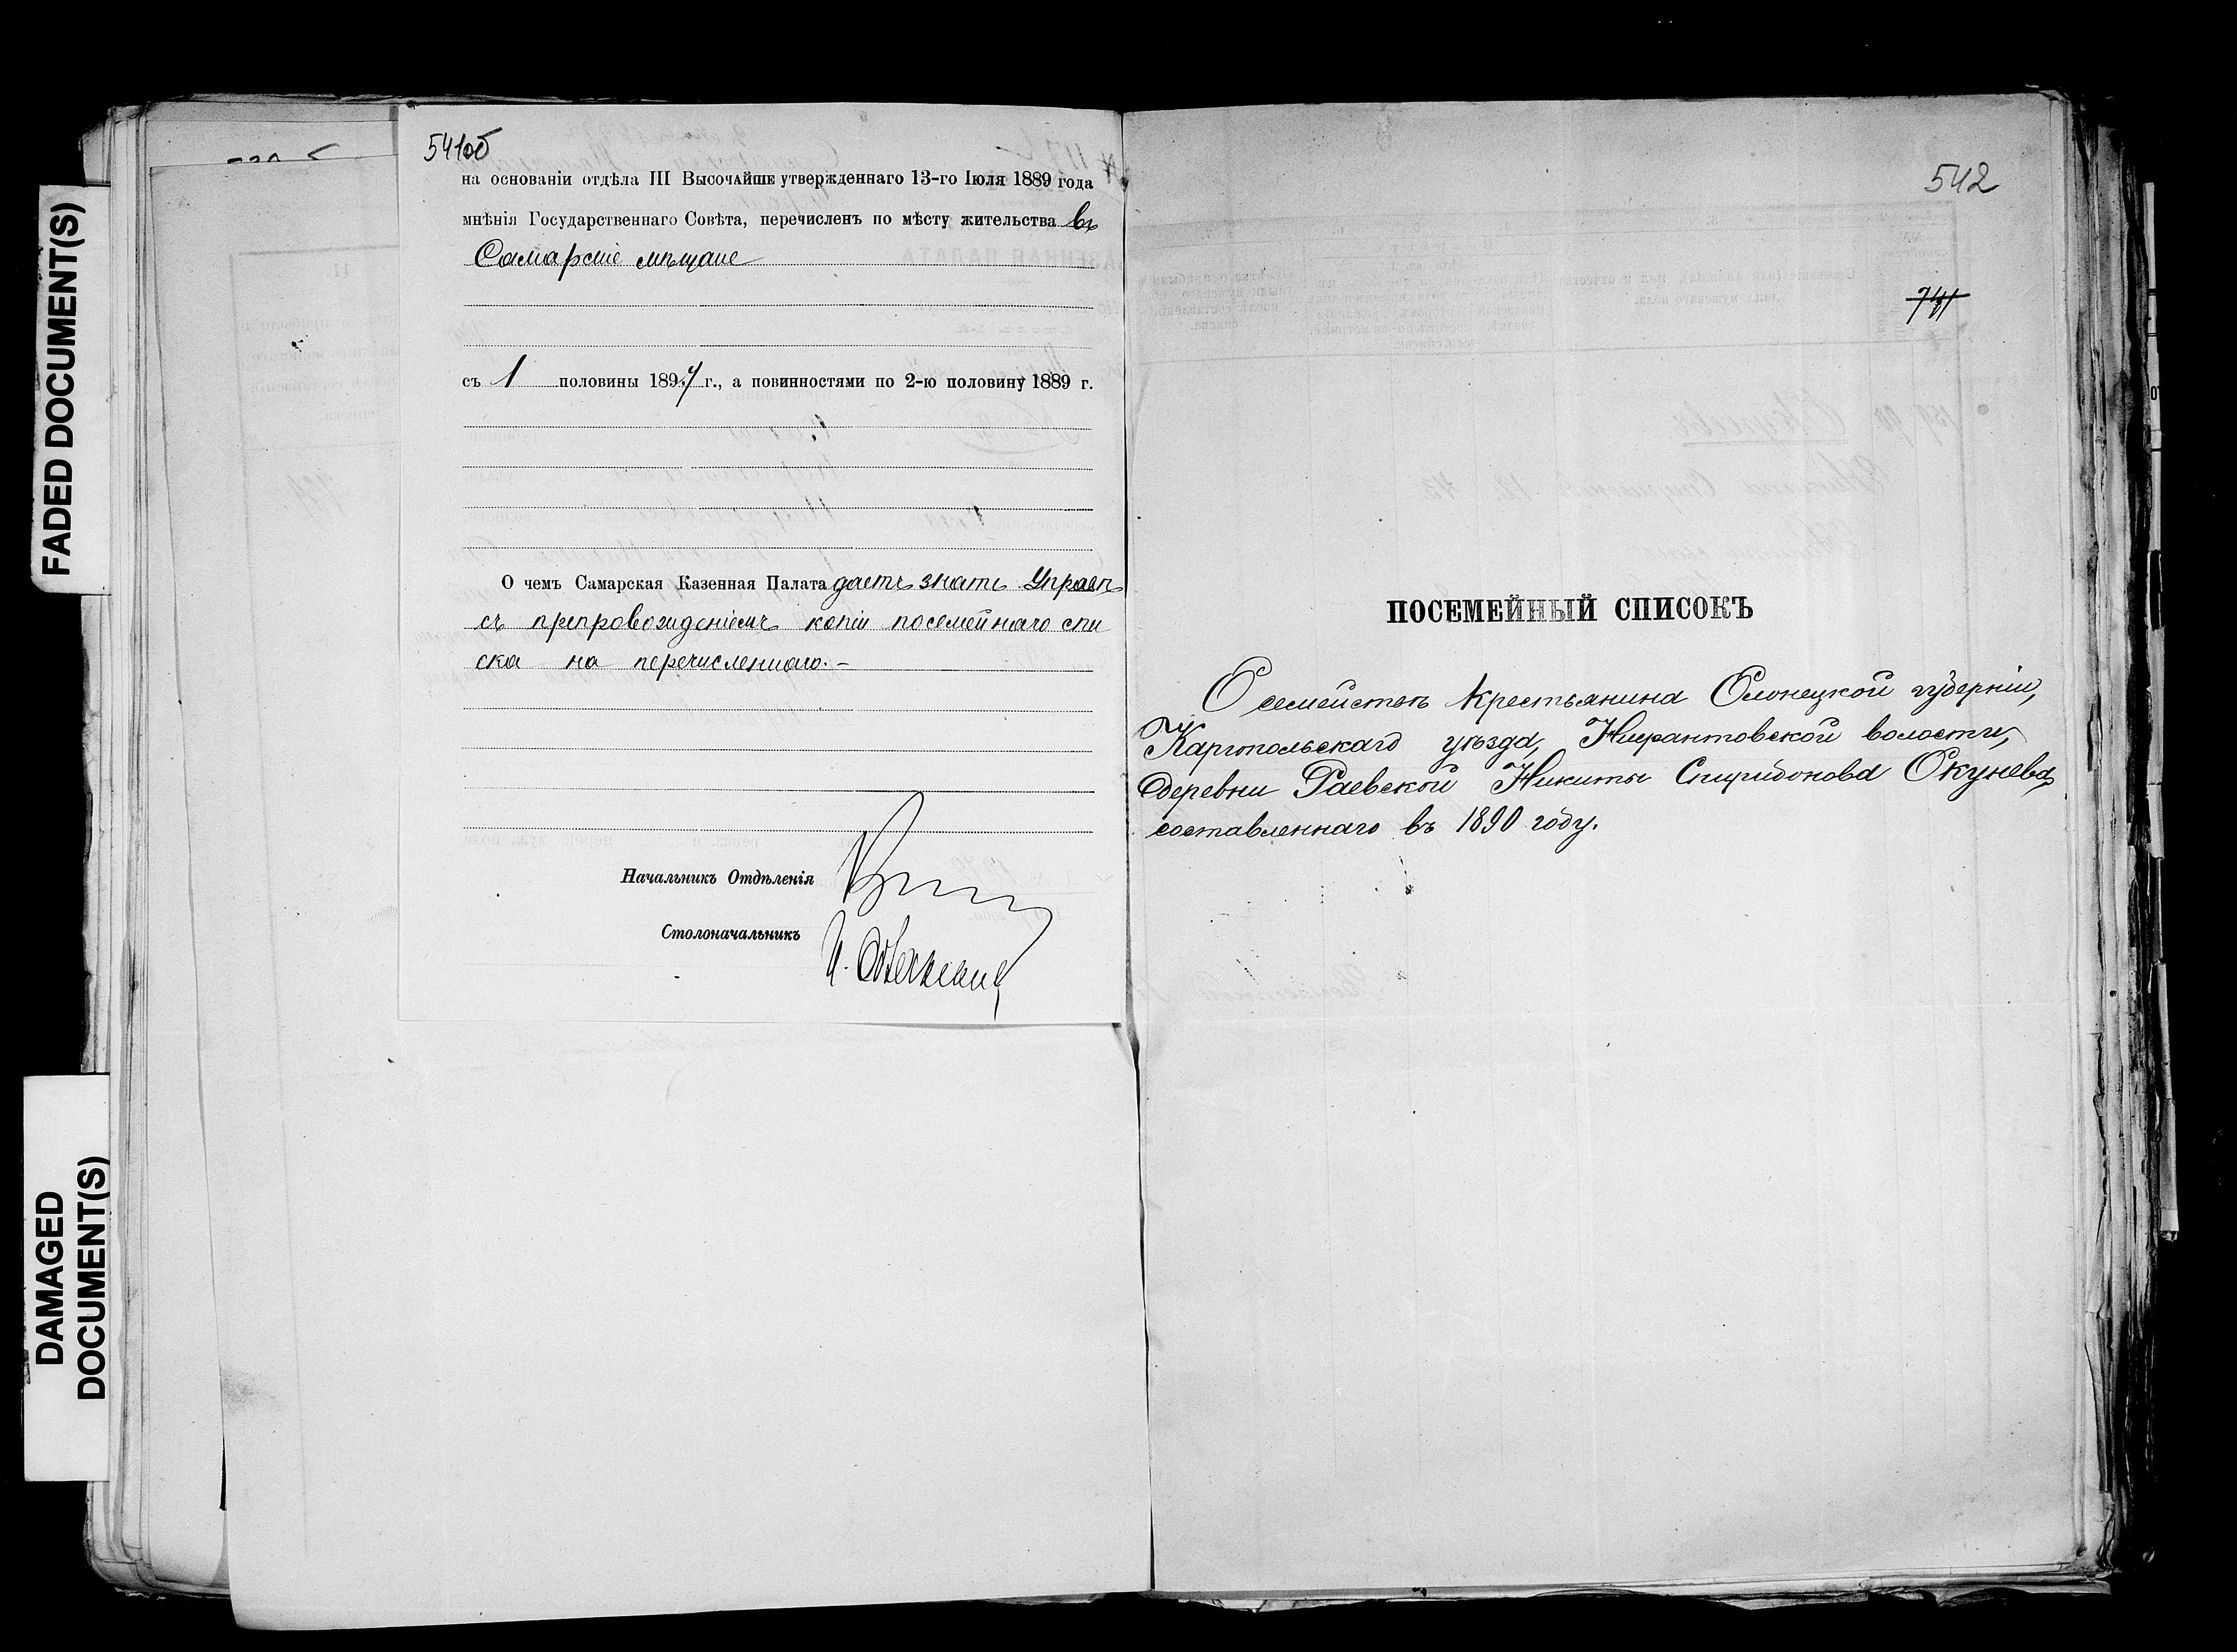 FADED DOCUMENT(S)
DAMAGED
DOCUMENT(S)
541об
на основаніи отдѣла III Высочайше утвержденнаго 13-го Іюля 1889 года
мнѣнія Государственнаго Совѣта, перечисленъ по мѣсту жительства въ
Самарскіе мѣщане
съ 1 половины 1894 г., а повинностями по 2-ю половину 1889 г.
О чемъ Самарская Казенная Палата даетъ знать Управѣ
съ препровожденіемъ копіи посемейнаго спи
ска на перечисленнаго.-
Начальникъ Отдѣленія
Столоначальникъ
542
741
ПОСЕМЕЙНЫЙ СПИСОКЪ
О семействѣ крестьянина Олонецкой губерніи,
Каргопольскаго уѣзда, Нифантовской волости,
деревни Раевской Никиты Спиридонова Окунева,
составленнаго въ 1890 году.